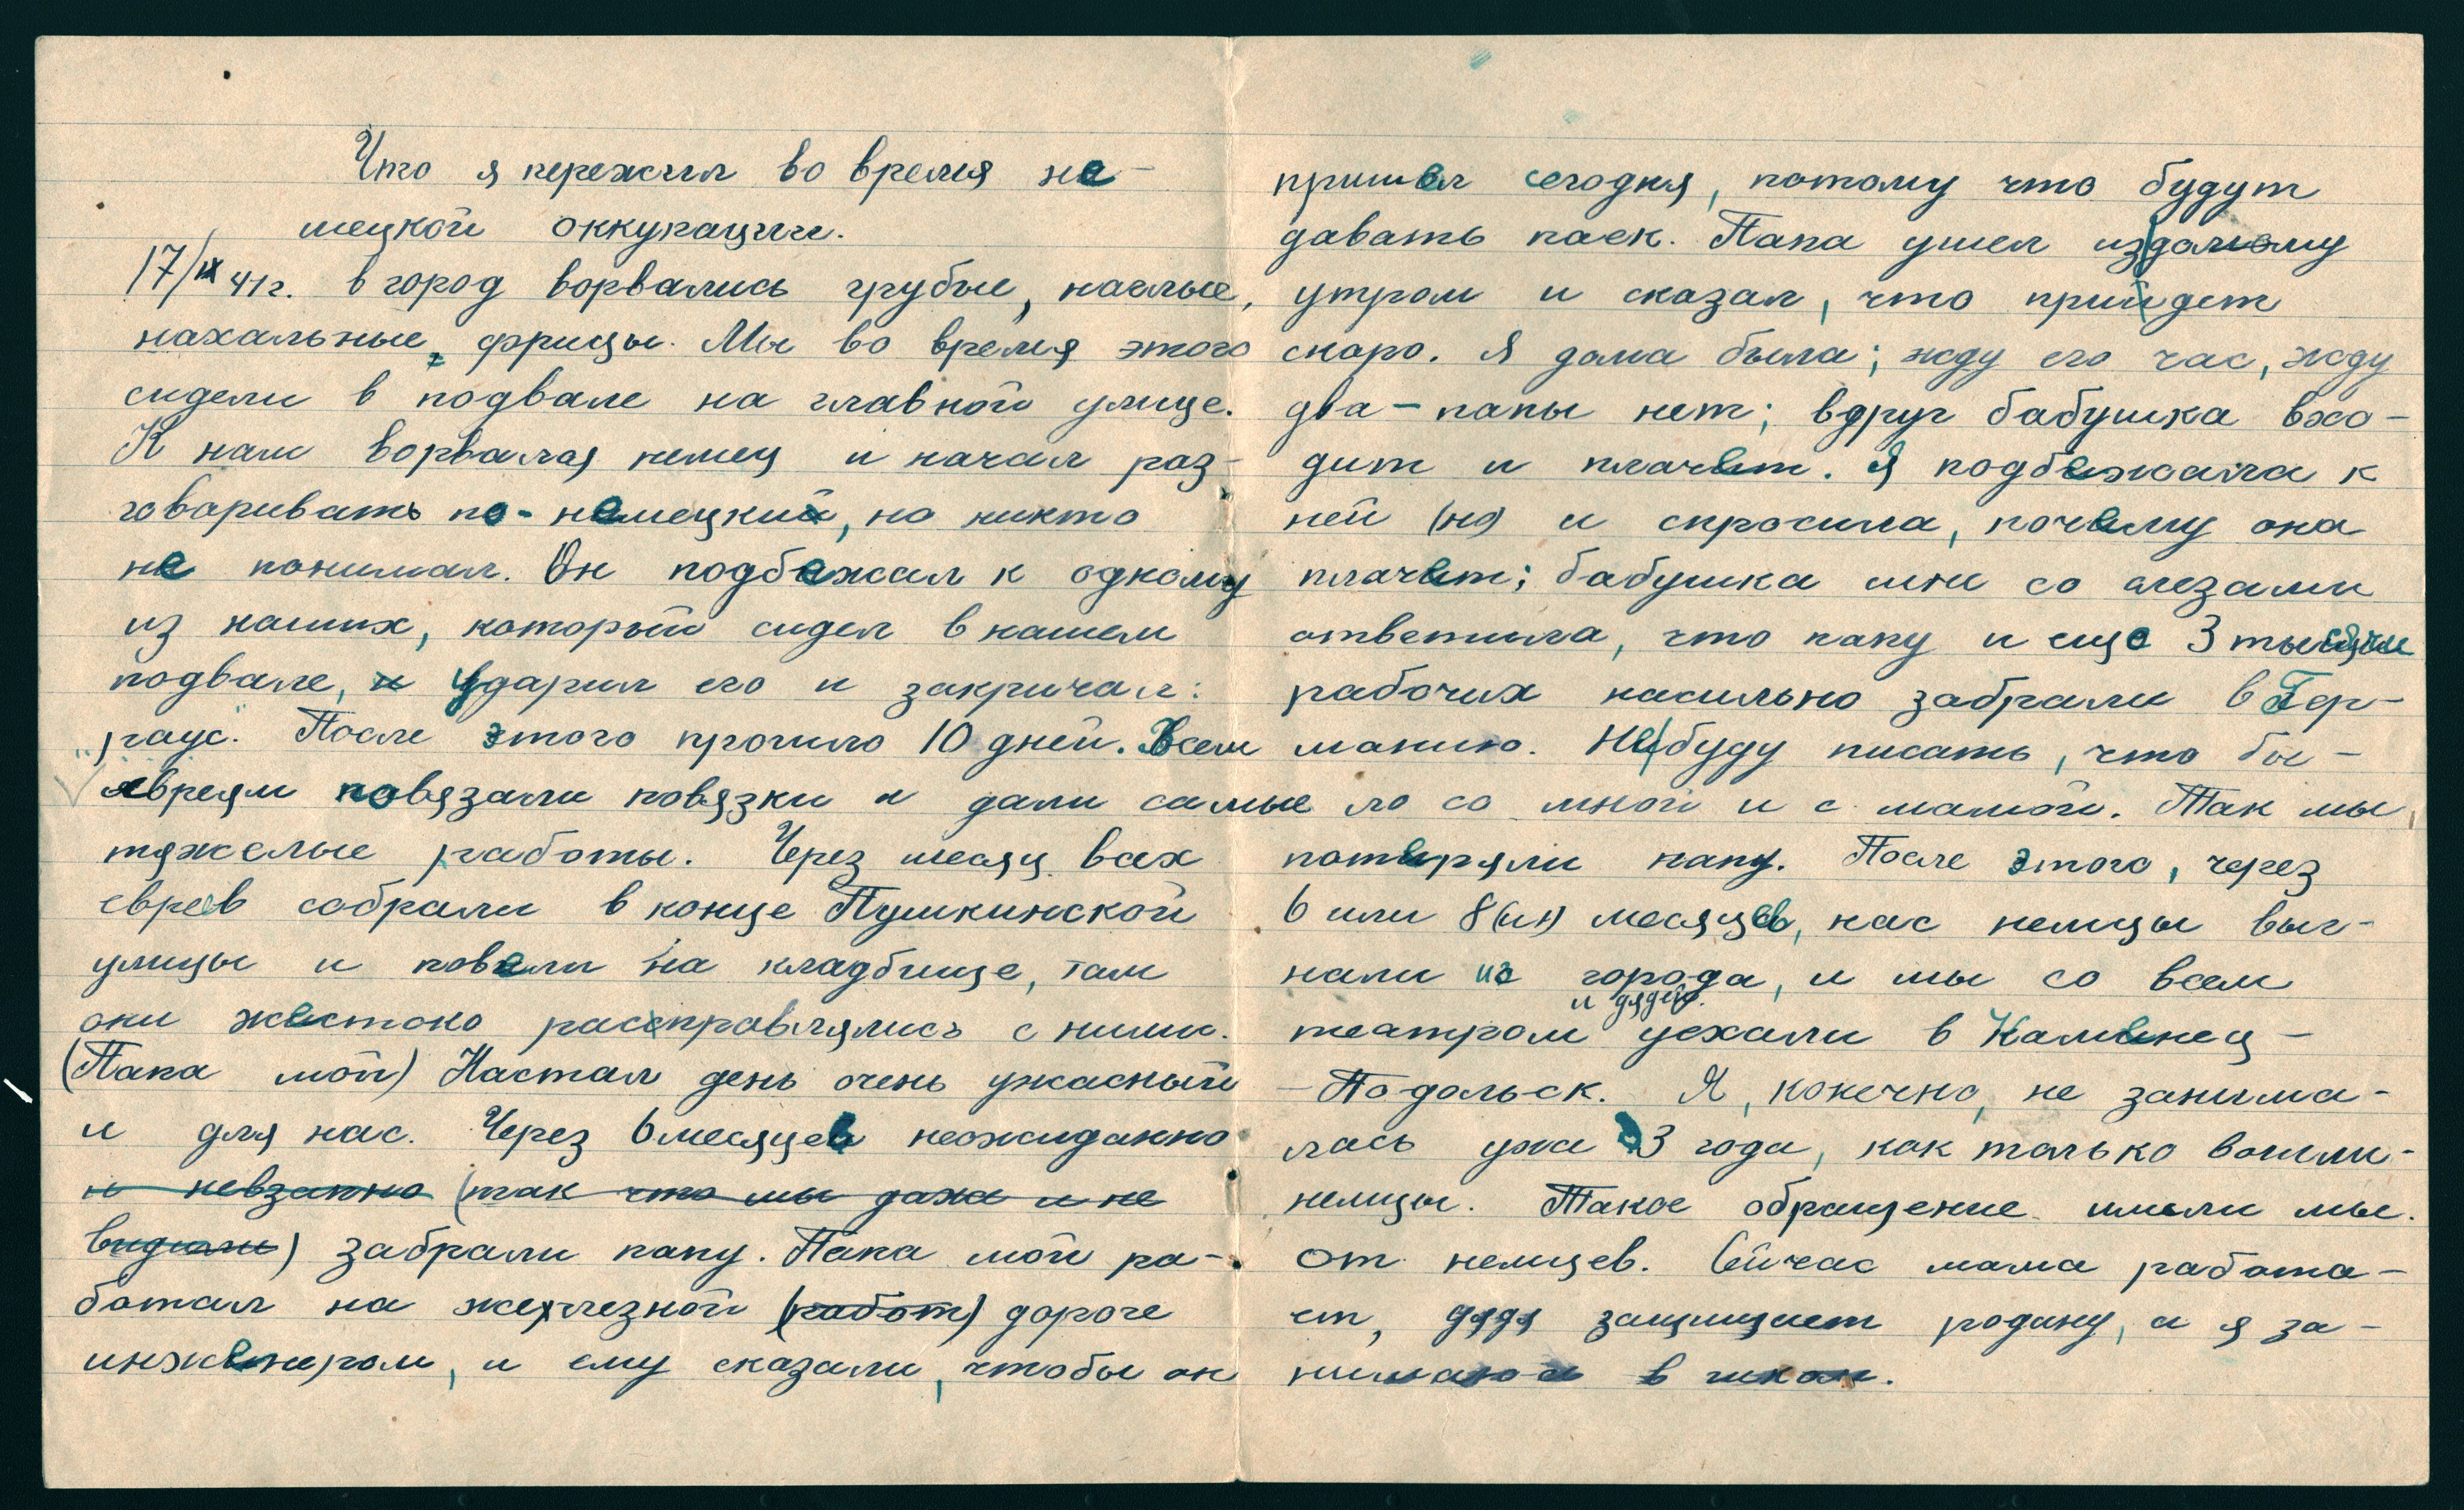 Что я пережил во время не-
мецкой оккупации.
17/IX 41г. в город ворвались грубые, наглые,
нахальные, фрицы. Мы во время этого
сидели в подвале на главной улице.
К нам ворвался немец и начал раз-
говаривать по-немецкий, но никто
не понимал. Он подбежал к одному
из наших, который сидел в нашем
подвале, и ударил его и закричал:
"раус". После этого прошло 10 дней. Всем
евреям повязали повязки и дали самые
тяжелые работы. Через месяц всех
евреев собрали в конце Пушкинской
улицы и повели на кладбище, там
они жестоко расправлялись с ними.
(Папа мой) Настал день очень ужасный
и для нас. Через 6 месяцев неожиданно
и невзапно (так что мы даже и не
видели) забрали папу. Папа мой ра-
ботал на железной (работ) дороге
инженером, и ему сказали, чтобы он
пришел сегодня, потому что будут
давать паек. Папа ушел из дому
утром и сказал, что прийдет
скоро. Я дома была; жду его час, жду
два - папы нет; вдруг бабушка вхо-
дит и плачет. Я подбежала к
ней (но) и спросила, почему она
плачет; бабушка мне со слезами
ответила, что папу и еще 3 тысячи
рабочих насильно забрали в Гер-
манию. Не буду писать, что бы-
ло со мной и с мамой. Так мы
потеряли папу. После этого, через
6 или 8 месяцев, нас немцы выг-
нали из города, и мы со всем
театром и дядей уехали в Каменец-
-Подольск. Я, конечно, не занима-
лась уже 3 года, как только вошли
немцы. Такое обращение имели мы
от немцев. Сейчас мама работа-
ет, дядя защищает родину, а я за-
нимаюсь в школе.